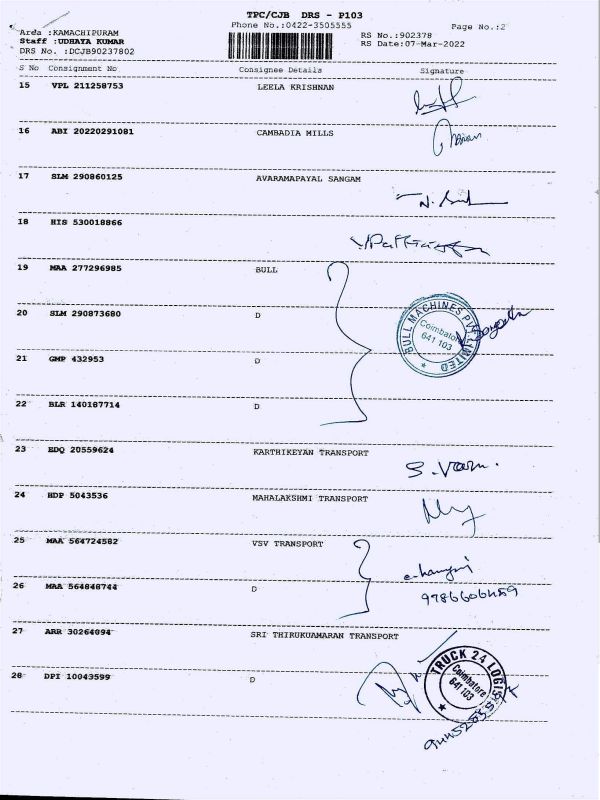 TPC/CJB DRS - P103
Phone No.:0422-3505555
Page No.:2
Area :KAMACHIPURAM
RS No.:902378
Staff :UDHAYA KUMAR
RS Date:07-Mar-2022
DRS No. :DCJB90237802
S No Consignment No Consignee Details Signature
15 VPL 211258753 LEELA KRISHNAN
16 ABI 20220291081 CAMBADIA MILLS
17 SLM 290860125 AVARAMAPAYAL SANGAM
18 HIS 530018866
19 MAA 277296985 BULL
20 SLM 290873680 D
BULL MACHINES PVT LIMITED
Coimbatore
641 103
21 GMP 432953 D
22 BLR 140187714 D
23 EDQ 20559624 KARTHIKEYAN TRANSPORT
24 HDP 5043536 MAHALAKSHMI TRANSPORT
25 MAA 564724582 VSV TRANSPORT
26 MAA 564848744 D
27 ARR 30264094 SRI THIRUKUAMARAN TRANSPORT
28 DPI 10043599 D
TRUCK 24 LOGIS
Coimbatore
641 103